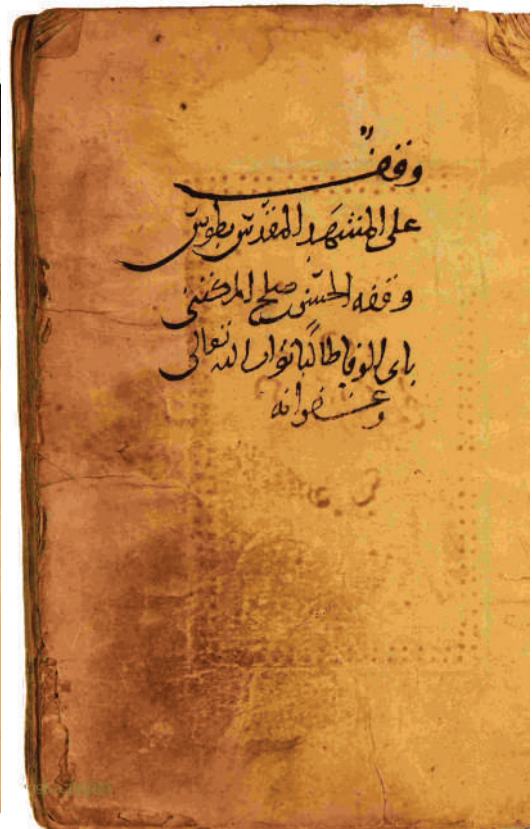 وقف
على المشهد المقدس بطوس
وقفه الحسن صلح المكنى
بابى الوفا طالبا ثواب الله تعالى